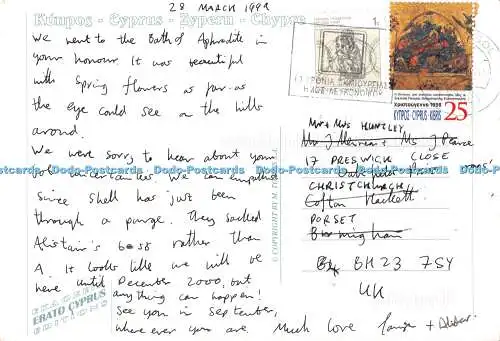 28 MARCH 1999
Κύπρος - Cyprus - Zypern - Chypre
We went to the Bath of Aphrodite in
your honour. It was beautiful
with Spring flowers as far as
the eye could see on the hills
around.
We were sorry to hear about your
job uncertainties. We can empathise
since Shell has just been
through a purge. They sacked
Alistair's boss rather than
A. It looks like we will be
here until December 2000, but
anything can happen!
See you in September,
where ever you are. Much love
ERATO CYPRUS
EDITIONS
© COPYRIGHT BY M.
1c
Χριστούγεννα 1998
ΚΥΠΡΟΣ CYPRUS KIBRIS 25
Mr + Mrs HUNTLEY
17 PRESWICK CLOSE
CHRISTCHURCH
Cofton Hackett
DORSET
Birmingham
BH23 7SY
UK
Dodo-Postcards Dodo-Postcards Dodo-Postcards Dodo-Postcards